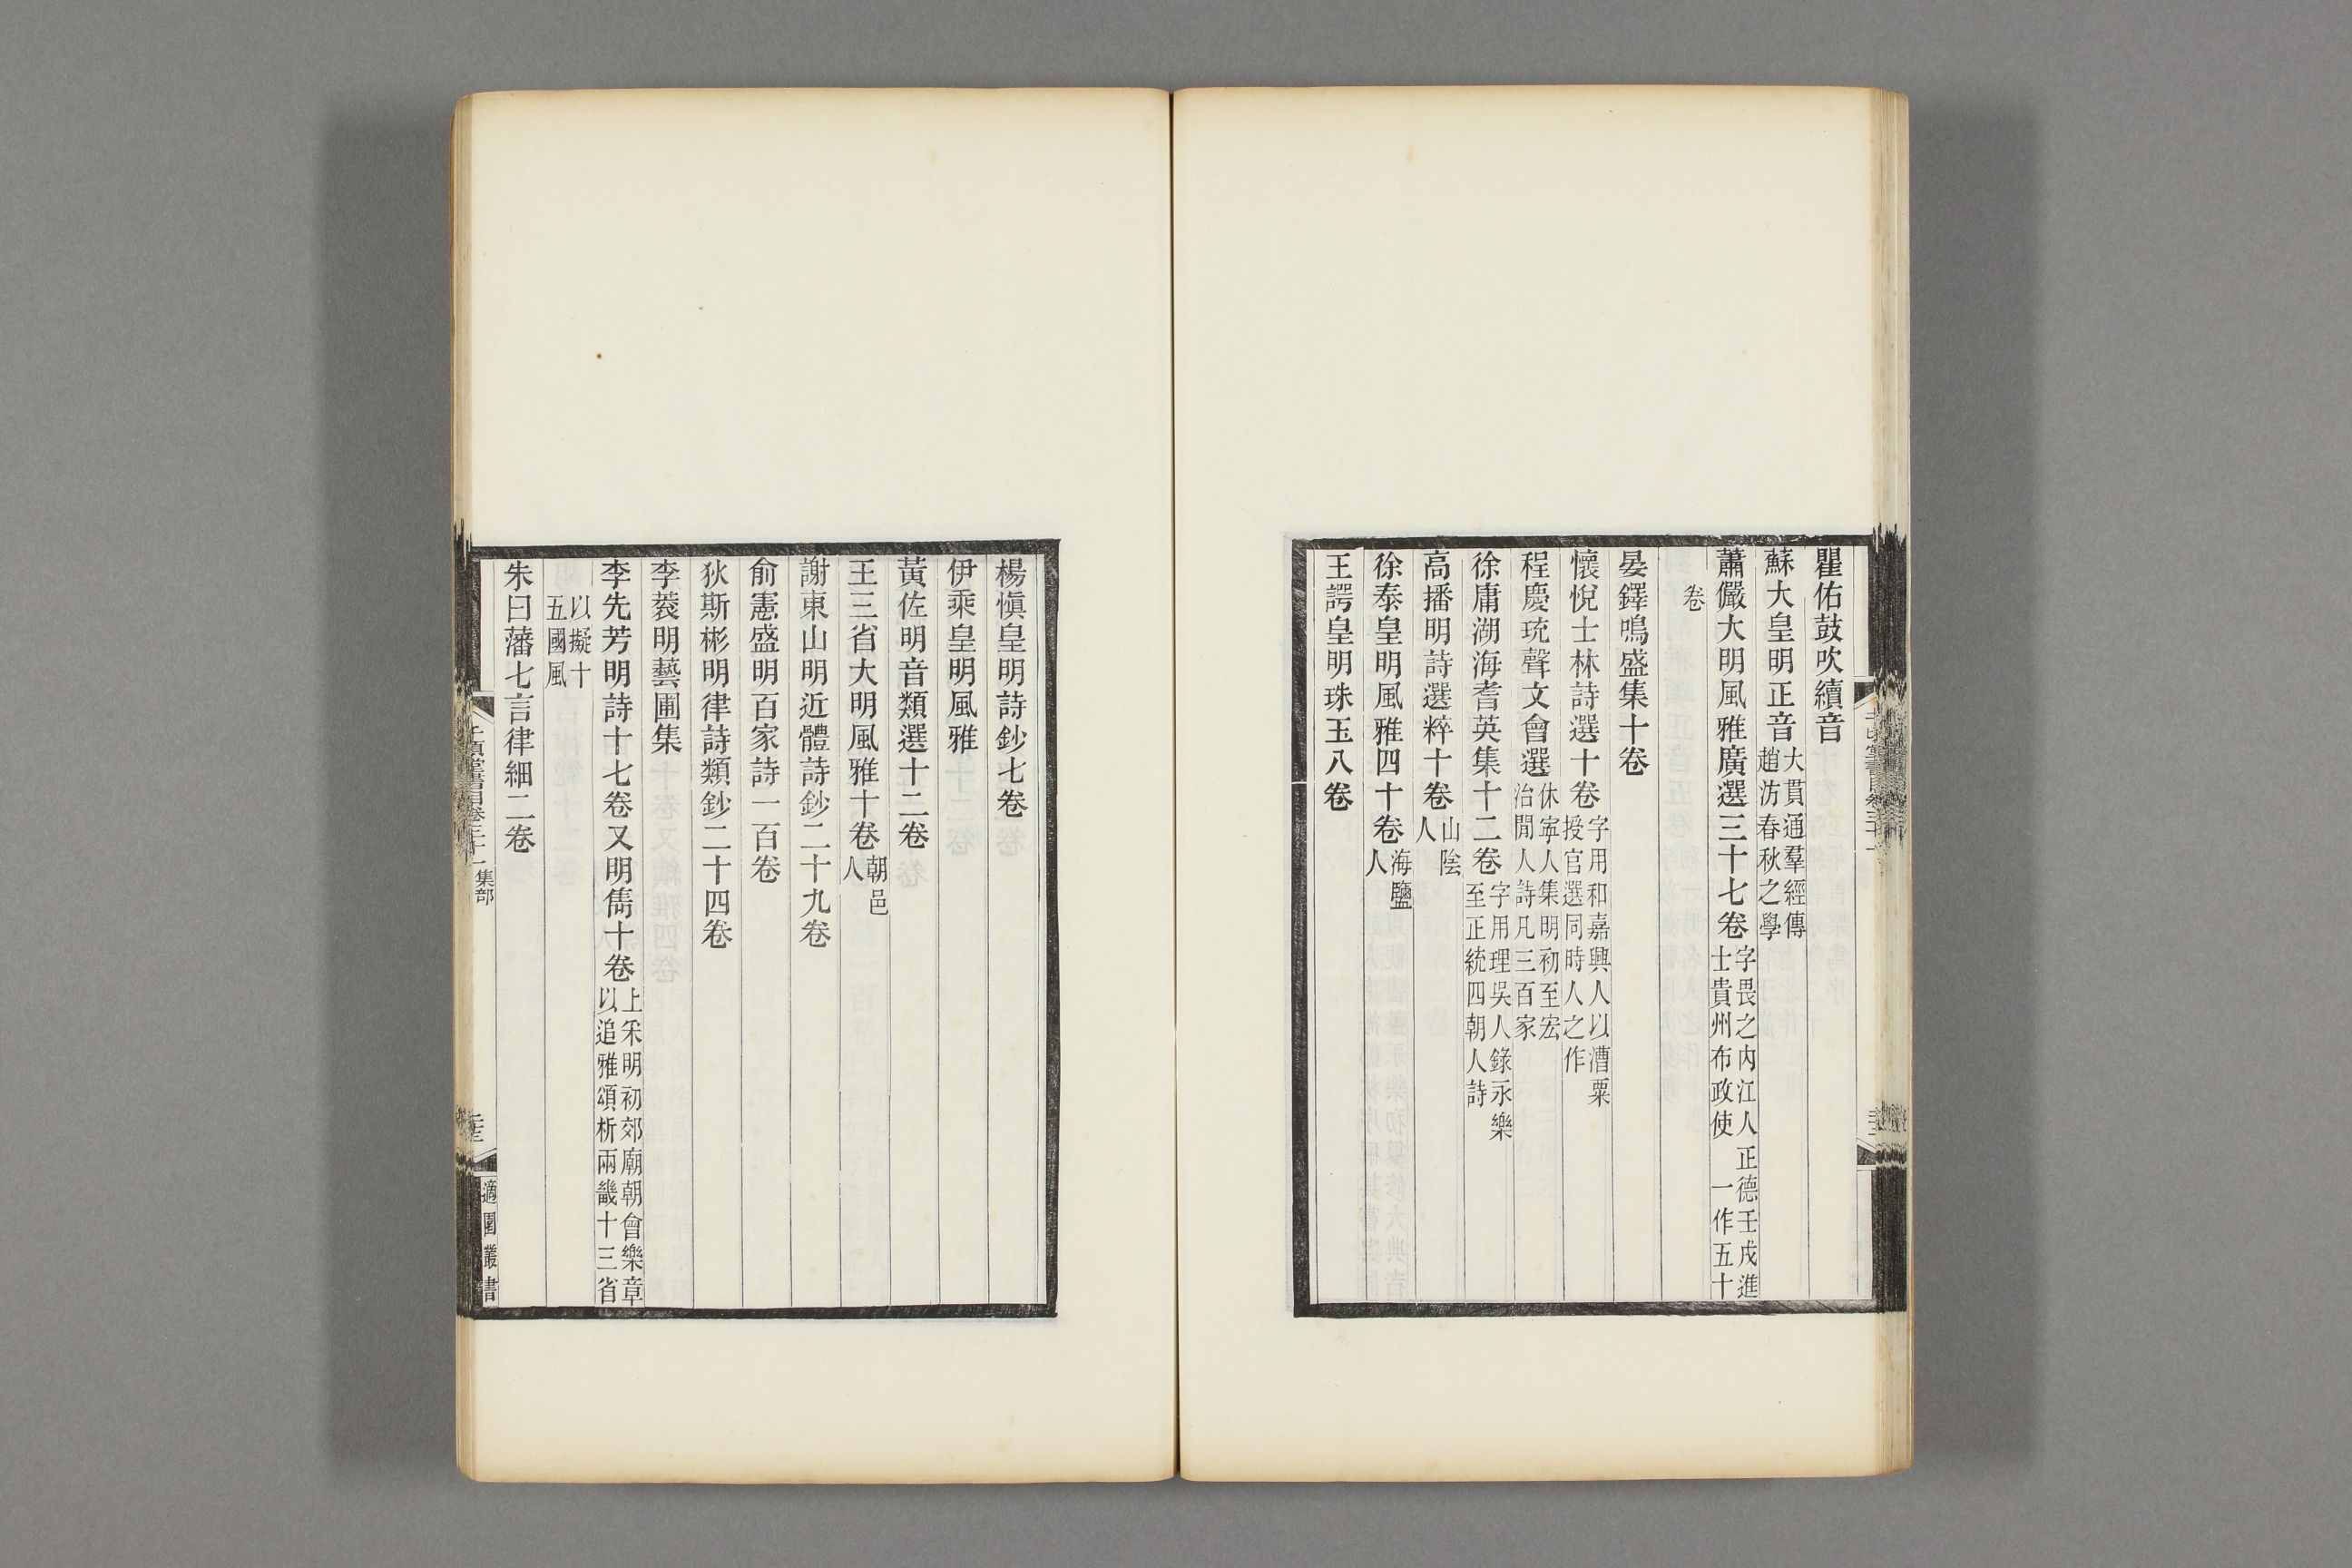 瞿佑鼓吹續音
蘇大皇明正音大貫通羣經傳趙汸春秋之學
蕭儼大明風雅廣選三十七卷字畏之內江人正德壬戌進士貴州布政使一作五十
卷
晏鐸鳴盛集十卷
懷悅士林詩選十卷字用和嘉興人以漕粟授官選同時人之作
程慶珫聲文會選休寧人集明初至宏治閒人詩凡三百家
徐庸湖海耆英集十二卷字用理吳人錄永樂至正統四朝人詩
高播明詩選粹十卷山陰人
徐泰皇明風雅四十卷海鹽人
王諤皇明珠玉八卷
楊愼皇明詩鈔七卷
伊乘皇明風雅
黃佐明音類選十二卷
王三省大明風雅十卷朝邑人
謝東山明近體詩鈔二十九卷
俞憲盛明百家詩一百卷
狄斯彬明律詩類鈔二十四卷
李蓘明藝圃集
李先芳明詩十七卷又明雋十卷上采明初郊廟朝會樂章以追雅頌析兩畿十三省
以擬十五國風
朱曰藩七言律細二卷
千頃堂書目卷三十一 集部
適園叢書